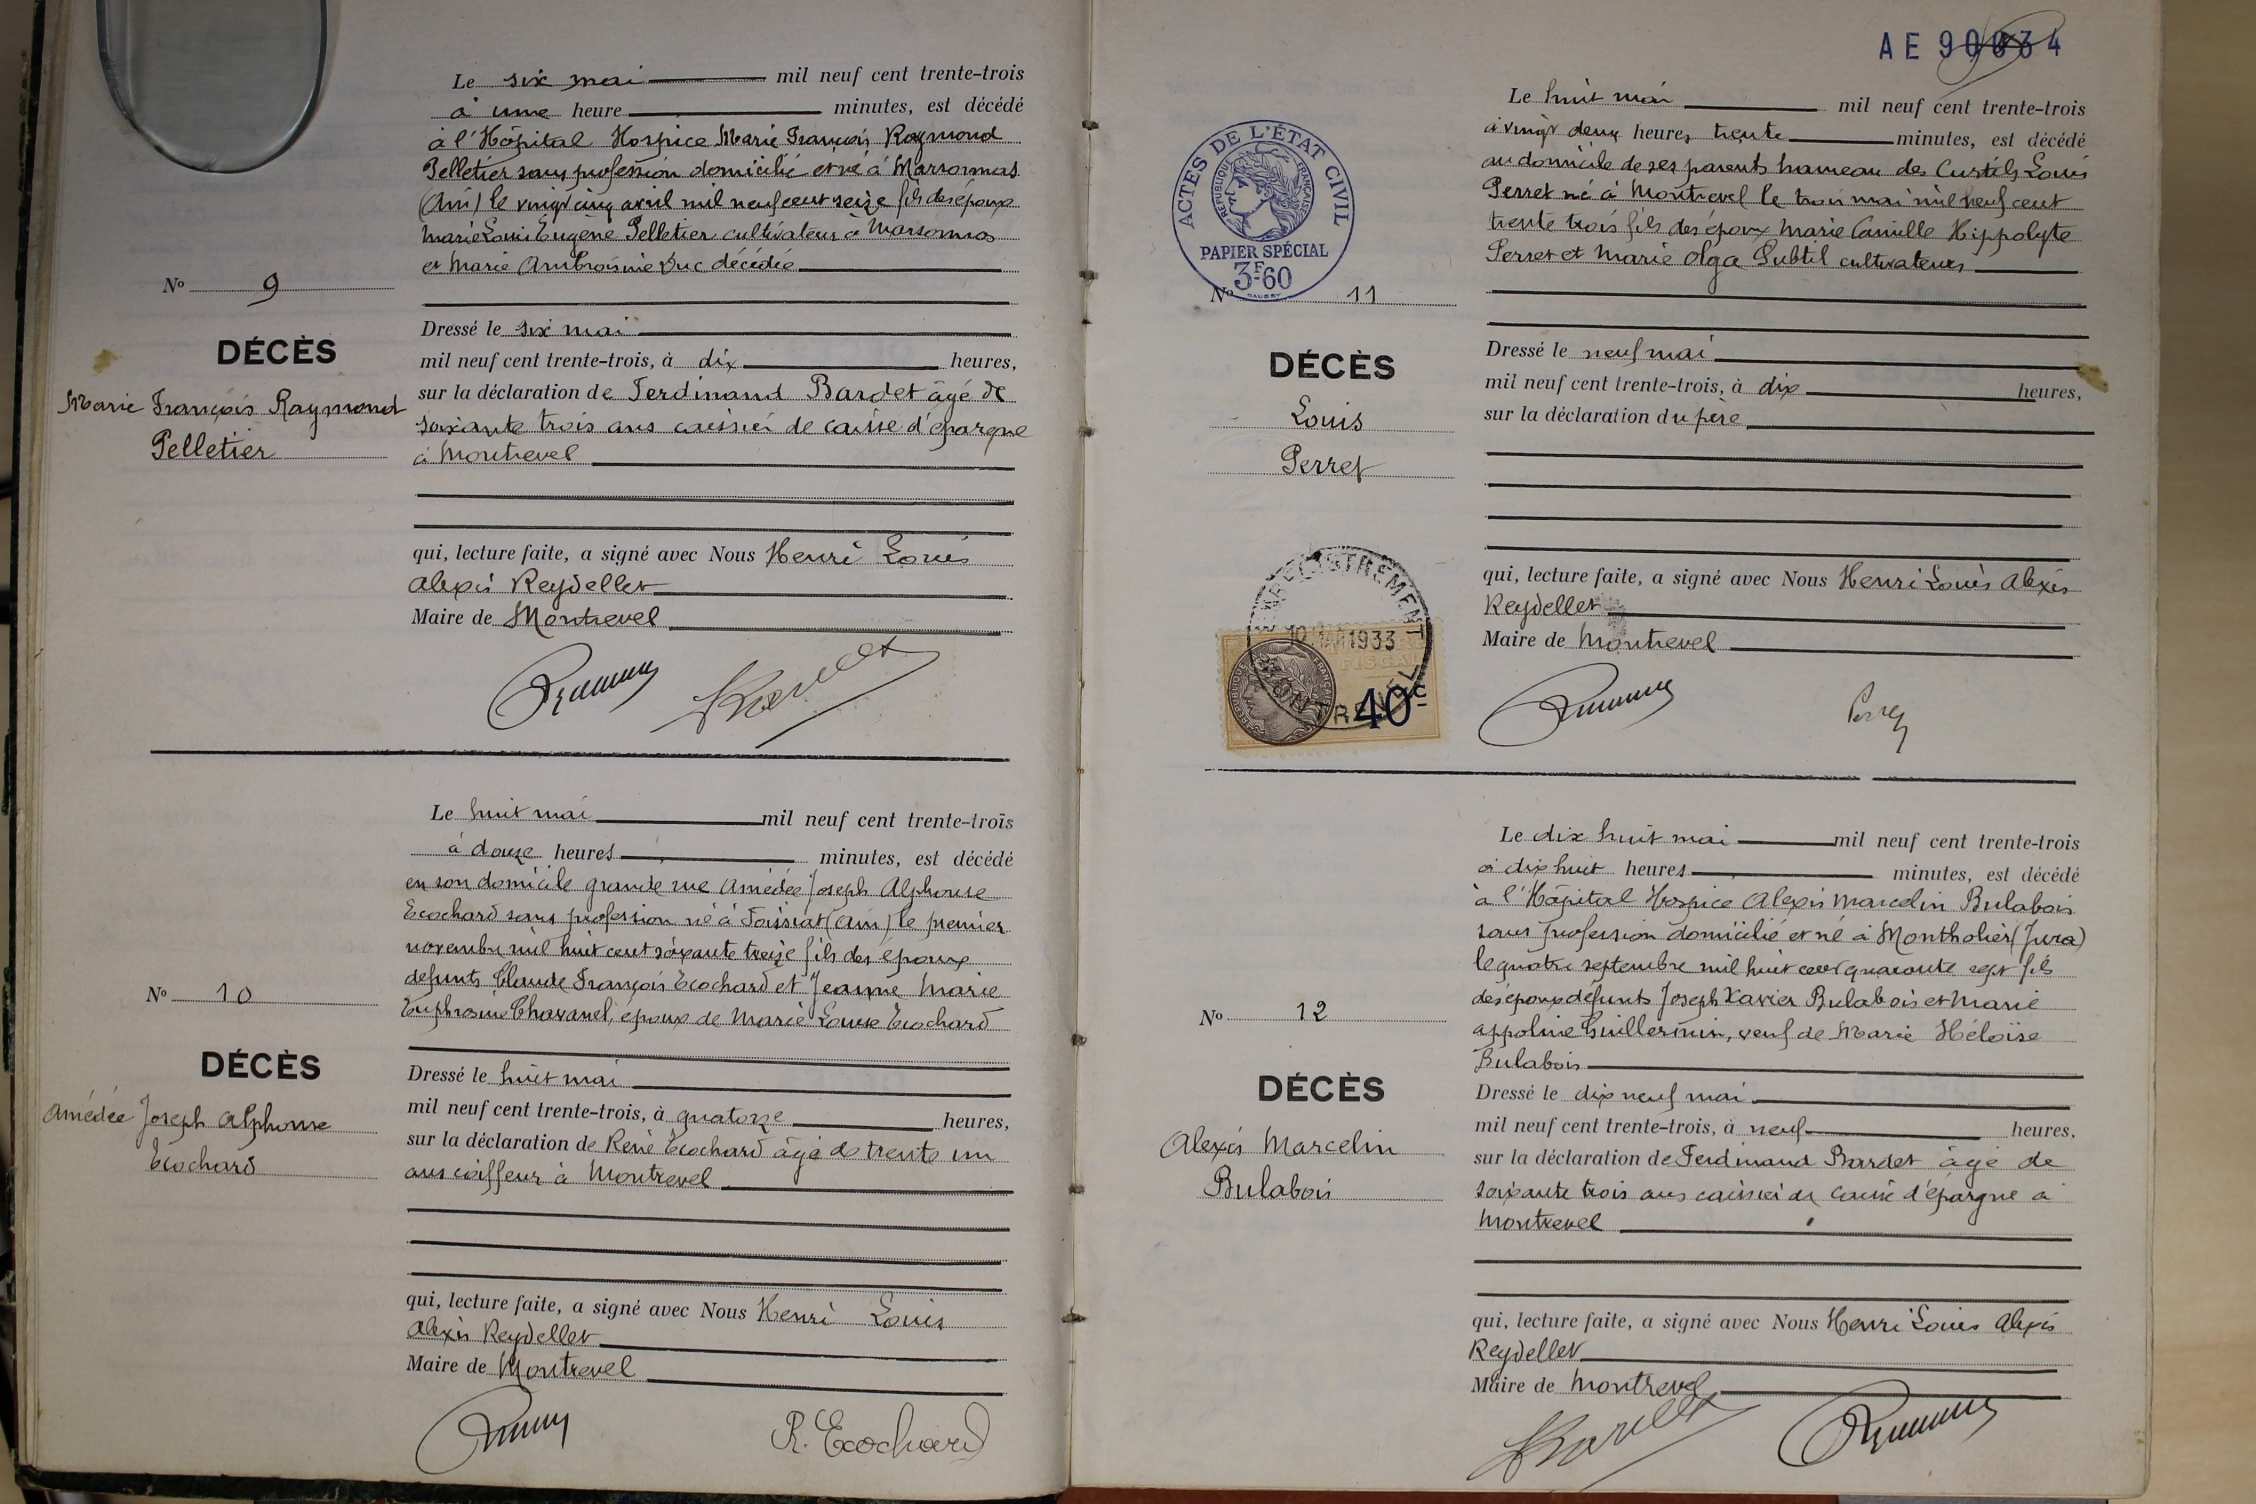 Le six mai mil neuf cent trente-trois
à une heure minutes, est décédé
à l'Hôpital Hospice Marie François Raymond
Pelletier sans profession domicilié et né à Marsonnas
(Ain) le vingt cinq avril mil neuf cent seize fils des époux
Marie Louis Eugène Pelletier cultivateur à Marsonnas
et Marie Ambroisine Duc décédée
No 9
DÉCÈS
Marie François Raymond
Pelletier
Dressé le six mai
mil neuf cent trente-trois, à dix heures,
sur la déclaration de Ferdinand Bardet âgé de
soixante trois ans caissier de caisse d'épargne
à Montrevel
qui, lecture faite, a signé avec Nous Henri Louis
Alexis Reydellet
Maire de Montrevel
Le huit mai mil neuf cent trente-trois
à douze heures minutes, est décédé
en son domicile grande rue Amédée Joseph Alphonse
Ecochard sans profession né à Foissiat (Ain) le premier
novembre mil huit cent soixante treize fils des époux
défunts Claude François Ecochard et Jeanne Marie
Euphrosine Chavanel, époux de Marie Louise Ecochard
No 10
DÉCÈS
Amédée Joseph Alphonse
Ecochard
Dressé le huit mai
mil neuf cent trente-trois, à quatorze heures,
sur la déclaration de René Ecochard âgé de trente un
ans coiffeur à Montrevel
qui, lecture faite, a signé avec Nous Henri Louis
Alexis Reydellet
Maire de Montrevel
R. Ecochard
AE 90034
Le huit mai mil neuf cent trente-trois
à vingt deux heures trente minutes, est décédé
au domicile de ses parents hameau des Curtils Louis
Perret né à Montrevel le trois mai mil neuf cent
trente trois fils des époux Marie Camille Hippolyte
Perret et Marie Olga Subtil cultivateurs
ACTES DE L'ÉTAT CIVIL
RÉPUBLIQUE FRANÇAISE
PAPIER SPÉCIAL
3F60
No 11
DÉCÈS
Louis
Perret
Dressé le neuf mai
mil neuf cent trente-trois, à dix heures,
sur la déclaration du père
qui, lecture faite, a signé avec Nous Henri Louis Alexis
Reydellet
Maire de Montrevel
ENREGISTREMENT
10 MAI 1933
MONTREVEL
FISCAL
40c
Perret
Le dix huit mai mil neuf cent trente-trois
à dix huit heures minutes, est décédé
à l'Hôpital Hospice Alexis Marcelin Bulabois
sans profession domicilié et né à Montholier (Jura)
le quatre septembre mil huit cent quarante sept fils
des époux défunts Joseph Xavier Bulabois et Marie
Appoline Guillermin, veuf de Marie Héloïse
Bulabois
No 12
DÉCÈS
Alexis Marcelin
Bulabois
Dressé le dix neuf mai
mil neuf cent trente-trois, à neuf heures,
sur la déclaration de Ferdinand Bardet âgé de
soixante trois ans caissier de caisse d'épargne à
Montrevel
qui, lecture faite, a signé avec Nous Henri Louis Alexis
Reydellet
Maire de Montrevel